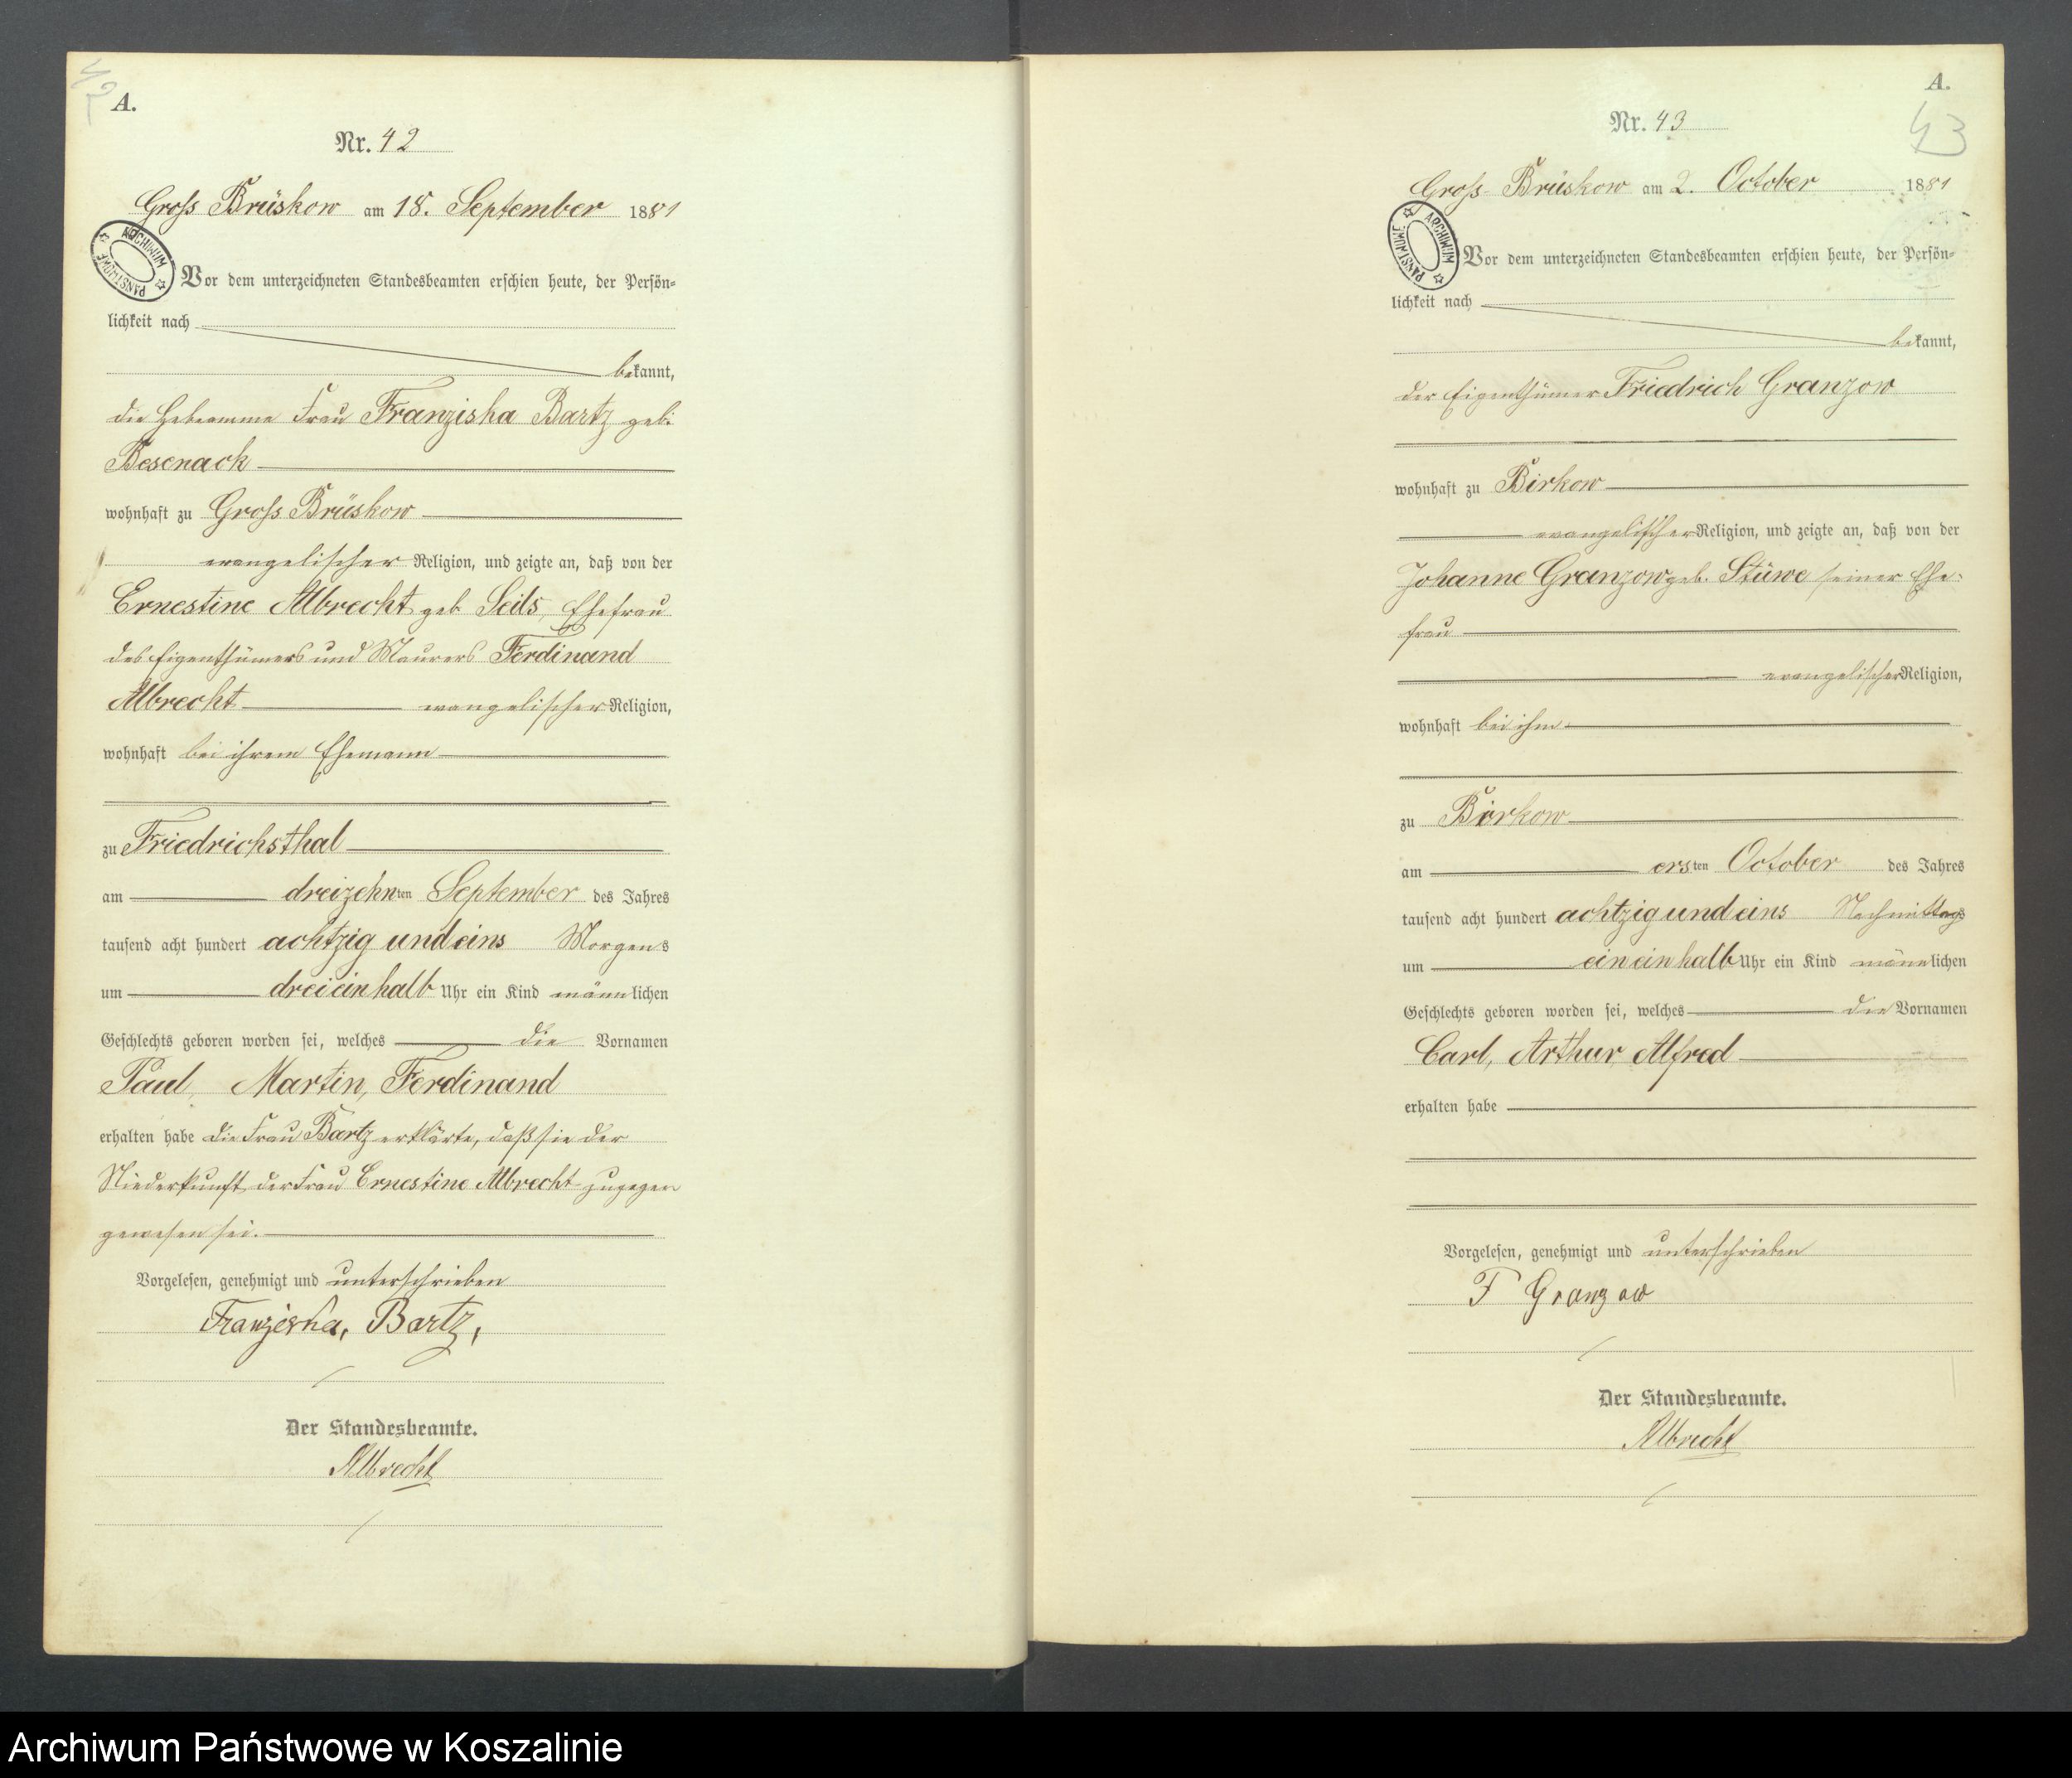 42
A.
Nr. 42
Gross Brüskow am 18. September 1881
ARCHIWUM PAŃSTWOWE
Vor dem unterzeichneten Standesbeamten erschien heute, der Persön-
lichkeit nach
bekannt,
die Hebeamme Frau Franziska Bartz geb:
Besenack
wohnhaft zu Gross Brüskow
evangelischer Religion, und zeigte an, daß von der
Ernestine Albrecht geb. Seils, Ehefrau
des Eigenthümers und Maurers Ferdinand
Albrecht evangelischer Religion,
wohnhaft bei ihrem Ehemann
zu Friedrichsthal
am dreizehnten September des Jahres
tausend acht hundert achtzig und eins Morgens
um dreieinhalb Uhr ein Kind männlichen
Geschlechts geboren worden sei, welches die Vornamen
Paul, Martin, Ferdinand
erhalten habe die Frau Bartz erklärte, daß sie der
Niederkunft der Frau Ernestine Albrecht zugegen
gewesen sei.
Vorgelesen, genehmigt und unterschrieben
Franziska, Bartz,
Der Standesbeamte.
Albrecht
A.
43
Nr. 43
Gross-Brüskow am 2. October 1881
ARCHIWUM PAŃSTWOWE
Vor dem unterzeichneten Standesbeamten erschien heute, der Persön-
lichkeit nach
bekannt,
der Eigenthümer Friedrich Granzow
wohnhaft zu Birkow
evangelischer Religion, und zeigte an, daß von der
Johanne Granzow geb. Stüwe seiner Ehe-
frau
evangelischer Religion,
wohnhaft bei ihm
zu Birkow
am ersten October des Jahres
tausend acht hundert achtzig und eins Nachmittags
um eineinhalb Uhr ein Kind männlichen
Geschlechts geboren worden sei, welches die Vornamen
Carl, Arthur, Alfred
erhalten habe
Vorgelesen, genehmigt und unterschrieben
F Granzow
Der Standesbeamte.
Albrecht
Archiwum Państwowe w Koszalinie